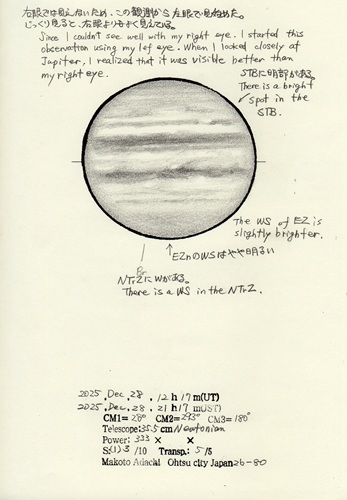 右眼では見えないため、この観測から左眼で見始めた。
じっくり見ると、右眼よりもよく見えている。
Since I couldn't see well with my right eye. I started this
observation using my lef eye. When I looked closely at
Jupiter, I realized that it was visible better than
my right eye.
STBに明部がある。
There is a bright
spot in the
STB.
The WS of EZ is
slightly brighter.
EZnのWSはやや明るい
NTrZにWSがある。
There is a WS in the NTrZ.
2025. Dec. 28. 12h 17m(UT)
2025. Dec. 28. 21h 17m(JST)
CM1= 28° CM2= 293° CM3= 180°
Telescope: 35.5cm Newtonian
Power: 333 × ×
S: (1)-3 /10 Transp.: 5/5
Makoto Adachi Ohtsu city Japan 26-80